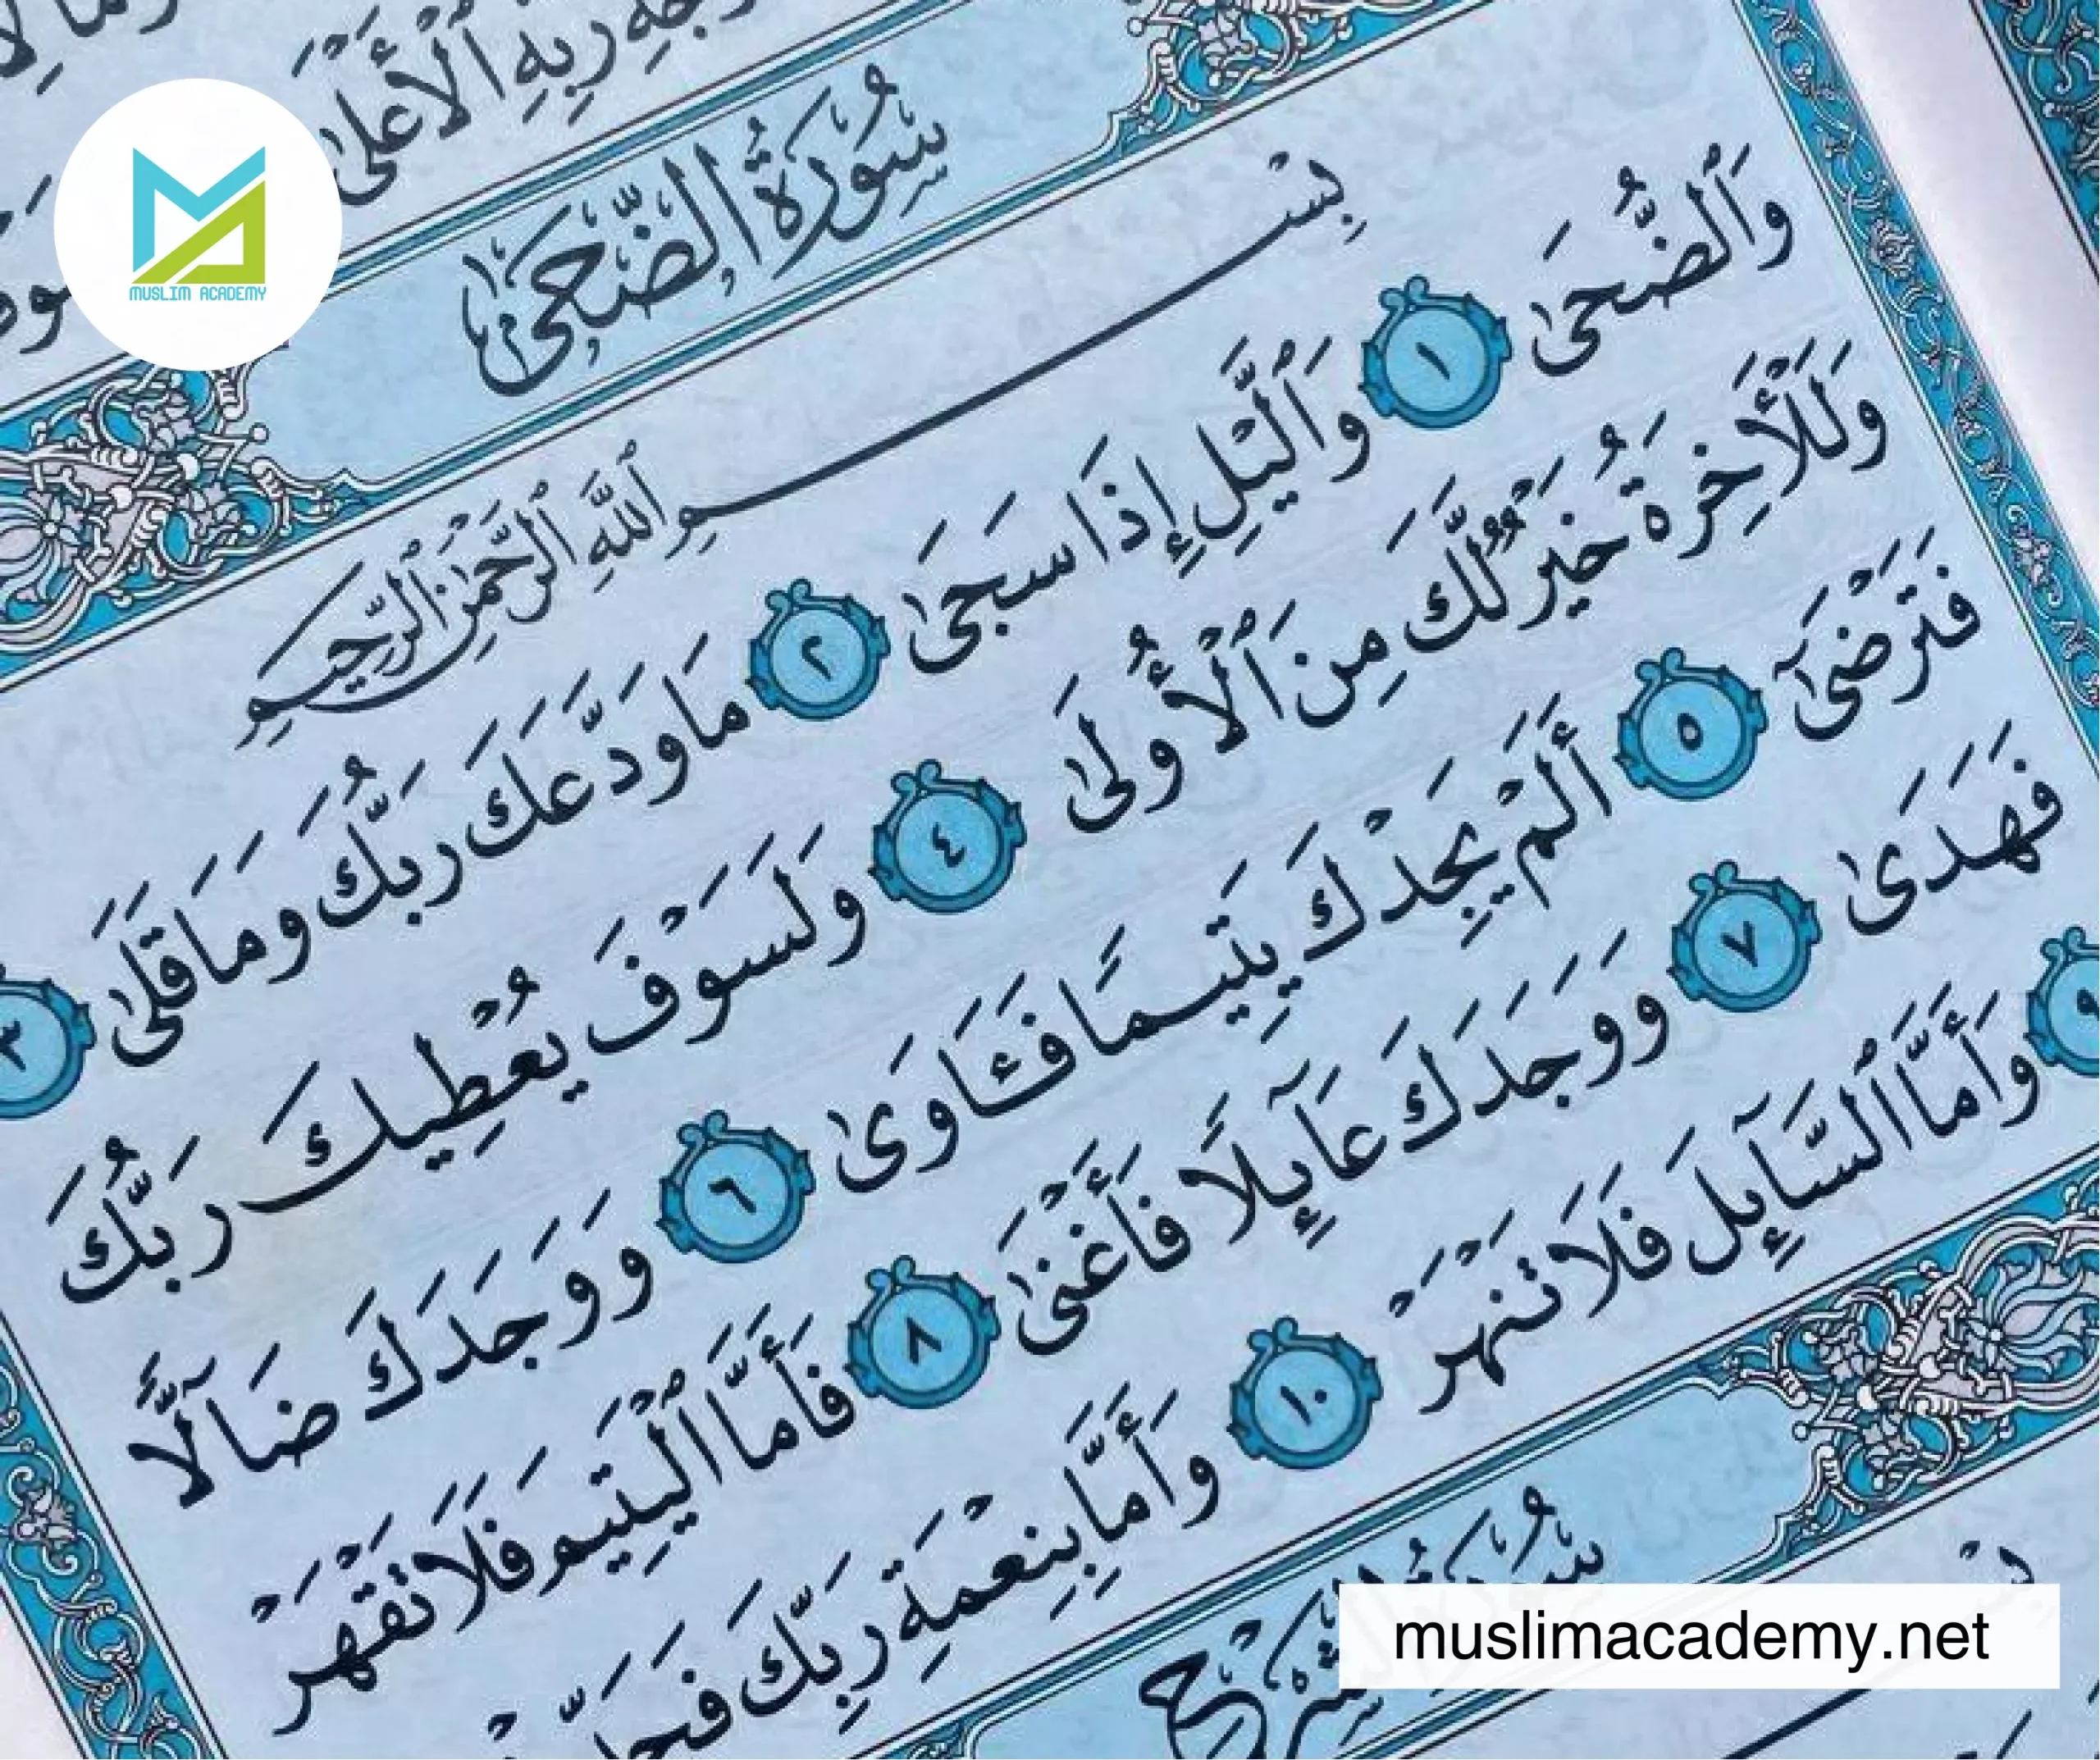 رَبِّهِ ٱلْأَعْلَىٰ
MUSLIM ACADEMY
سُورَةُ الضُّحَىٰ
بِسْمِ ٱللَّهِ ٱلرَّحْمَٰنِ ٱلرَّحِيمِ
وَٱلضُّحَىٰ ١ وَٱلَّيْلِ إِذَا سَجَىٰ ٢ مَا وَدَّعَكَ رَبُّكَ وَمَا قَلَىٰ ٣
وَلَلْأَخِرَةُ خَيْرٌ لَّكَ مِنَ ٱلْأُولَىٰ ٤ وَلَسَوْفَ يُعْطِيكَ رَبُّكَ
فَتَرْضَىٰٓ ٥ أَلَمْ يَجِدْكَ يَتِيمًا فَـَٔاوَىٰ ٦ وَوَجَدَكَ ضَآلًّا
فَهَدَىٰ ٧ وَوَجَدَكَ عَآئِلًا فَأَغْنَىٰ ٨ فَأَمَّا ٱلْيَتِيمَ فَلَا تَقْهَرْ
٩ وَأَمَّا ٱلسَّآئِلَ فَلَا تَنْهَرْ ١٠ وَأَمَّا بِنِعْمَةِ رَبِّكَ
muslimacademy.net